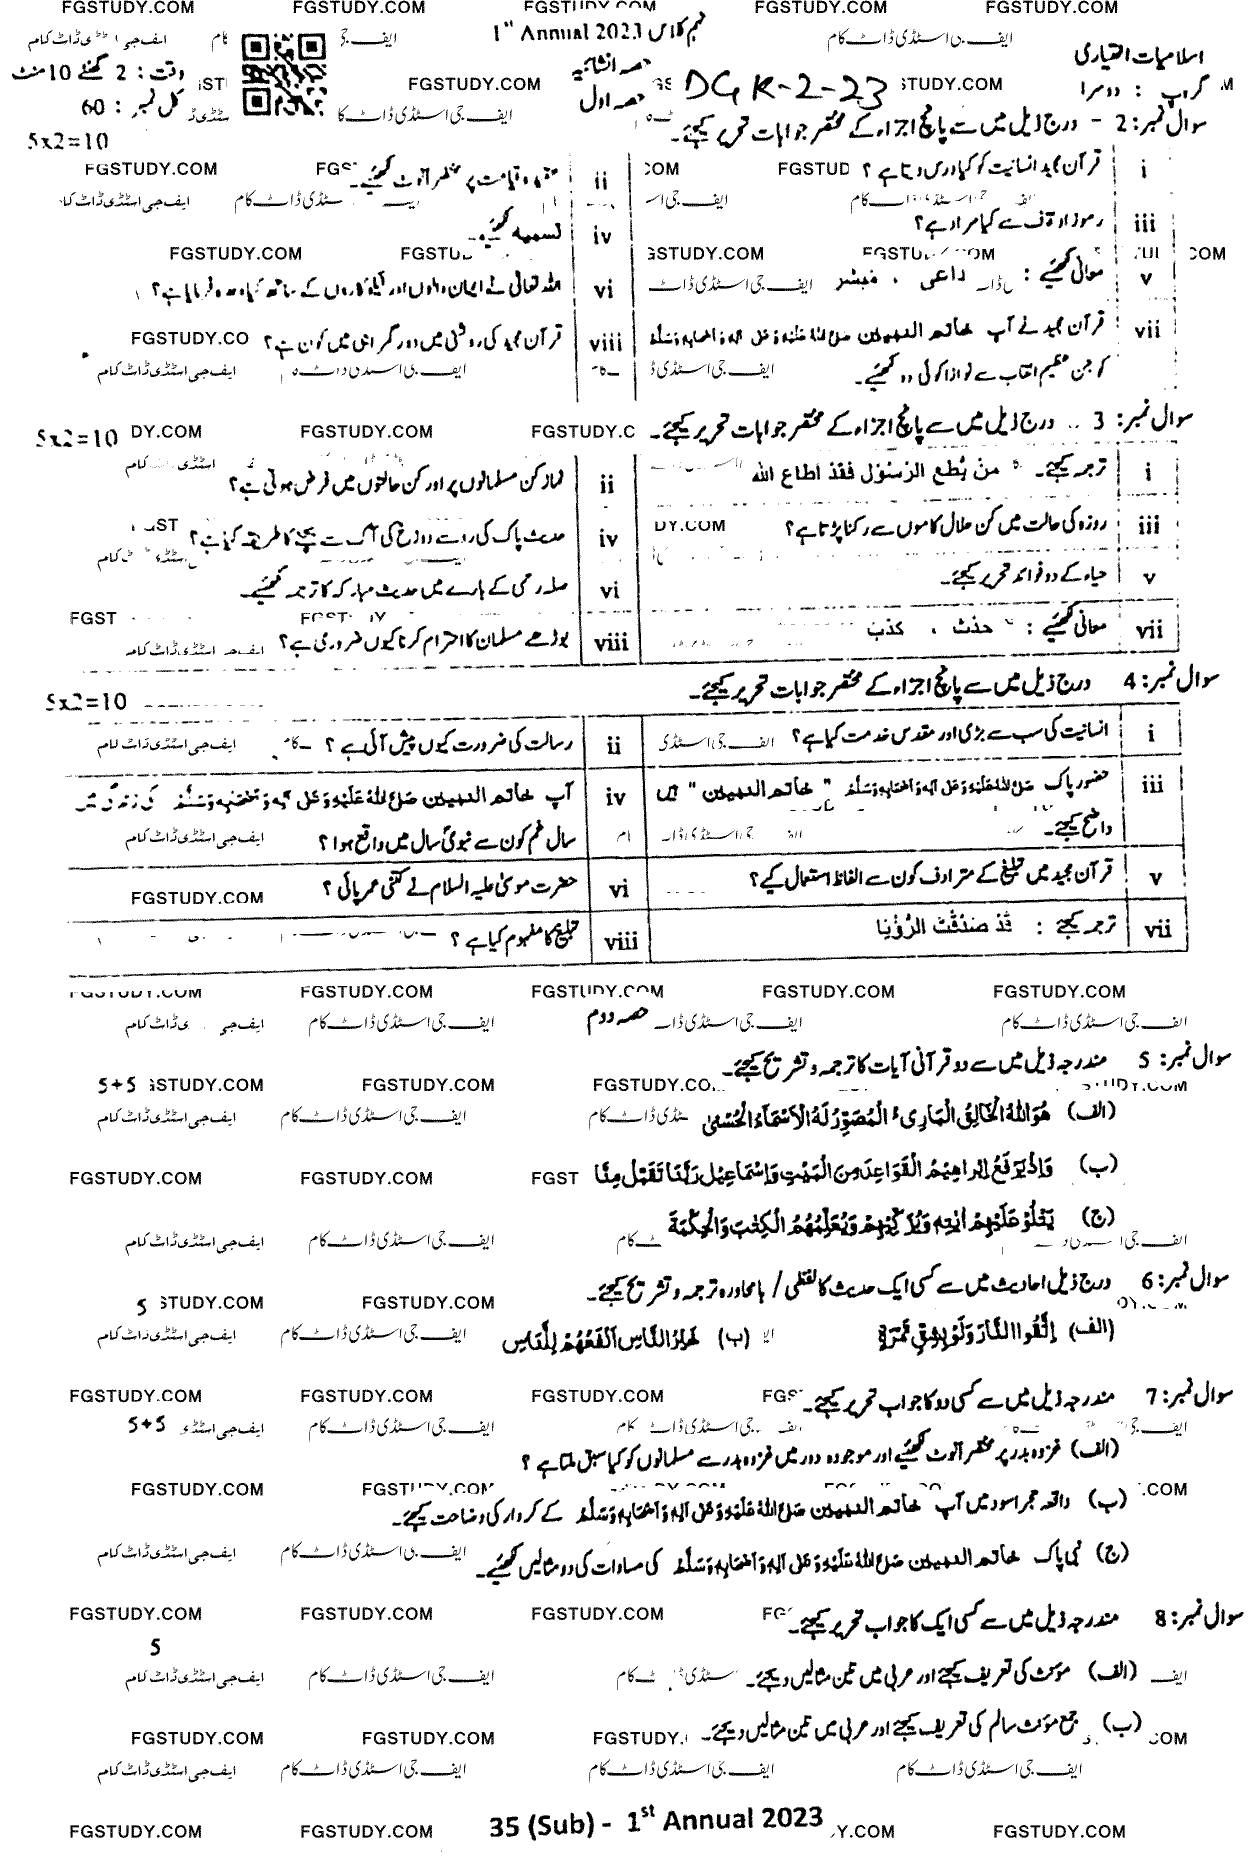 نہم کلاس 1st Annual 2023
اسلامیات اختیاری
حصہ انشائیہ
وقت : 2 گھنٹے 10 منٹ
گروپ : دوسرا
DGK-2-23
حصہ اول
کل نمبر : 60
سوال نمبر : 2 - درج ذیل میں سے پانچ اجزاء کے مختصر جوابات تحریر کیجئے۔ 5x2=10
i قرآن مجید انسانیت کو کیا درس دیتا ہے ؟
ii عقیدہ قیامت پر مختصر نوٹ لکھیے۔
iii رموز اوقف سے کیا مراد ہے؟
iv تسمیہ لکھیے۔
v معانی لکھیے : داعی ، مبشر
vi اللہ تعالیٰ نے ایمان والوں اور نیکوکاروں کے ساتھ کیا وعدہ فرمایا ہے؟
vii قرآن مجید نے آپ خاتم النبیین صَلَّی اللہُ عَلَیْہِ وَعَلٰی آلِہٖ وَاَصْحَابِہٖ وَسَلَّمَ
کو جن عظیم القاب سے نوازا کوئی دو لکھیے۔
viii قرآن مجید کی روشنی میں دور گمراہی میں کون ہے؟
سوال نمبر : 3 .. درج ذیل میں سے پانچ اجزاء کے مختصر جوابات تحریر کیجئے۔ 5x2=10
i ترجمہ کیجئے۔ " مَنْ يُّطِعِ الرَّسُوْلَ فَقَدْ اَطَاعَ اللّٰه
ii نماز کن مسلمانوں پر اور کن حالتوں میں فرض ہوتی ہے؟
iii روزہ کی حالت میں کن حلال کاموں سے رکنا پڑتا ہے؟
iv حدیث پاک کی رو سے دوزخ کی آگ سے بچنے کا طریقہ کیا ہے؟
v حیاء کے دو فوائد تحریر کیجئے۔
vi صلہ رحمی کے بارے میں حدیث مبارکہ کا ترجمہ لکھیے۔
vii معانی لکھیے : " حدث ، کذب
viii بوڑھے مسلمان کا احترام کرنا کیوں ضروری ہے؟
سوال نمبر : 4 درج ذیل میں سے پانچ اجزاء کے مختصر جوابات تحریر کیجئے۔ 5x2=10
i انسانیت کی سب سے بڑی اور مقدس خدمت کیا ہے؟
ii رسالت کی ضرورت کیوں پیش آئی ہے ؟
iii حضور پاک صَلَّی اللہُ عَلَیْہِ وَعَلٰی آلِہٖ وَاَصْحَابِہٖ وَسَلَّمَ " خاتم النبیین " ہیں
واضح کیجئے۔
iv آپ خاتم النبیین صَلَّی اللہُ عَلَیْہِ وَعَلٰی آلِہٖ وَاَصْحَابِہٖ وَسَلَّمَ کی زندگی میں
سال غم کون سے نبویؐ سال میں واقع ہوا ؟
v قرآن مجید میں تبلیغ کے مترادف کون سے الفاظ استعمال کیے؟
vi حضرت موسیٰ علیہ السلام نے کتنی عمر پائی ؟
vii ترجمہ کیجئے : قَدْ صَدَّقْتَ الرُّؤْيَا
viii تبلیغ کا مفہوم کیا ہے ؟
حصہ دوم
سوال نمبر : 5 مندرجہ ذیل میں سے دو قرآنی آیات کا ترجمہ و تشریح کیجئے۔ 5+5
(الف) هُوَ اللّٰهُ الْخَالِقُ الْبَارِیءُ الْمُصَوِّرُ لَهُ الْاَسْمَاءُ الْحُسْنٰی
(ب) وَاِذْ يَرْفَعُ اِبْرَاهِيْمُ الْقَوَاعِدَ مِنَ الْبَيْتِ وَاِسْمَاعِيْلُ رَبَّنَا تَقَبَّلْ مِنَّا
(ج) يَتْلُوْ عَلَيْهِمْ اٰيٰتِهٖ وَيُزَكِّيْهِمْ وَيُعَلِّمُهُمُ الْكِتٰبَ وَالْحِكْمَةَ
سوال نمبر : 6 درج ذیل احادیث میں سے کسی ایک حدیث کا لفظی / بامحاورہ ترجمہ و تشریح کیجئے۔ 5
(الف) اِتَّقُوا النَّارَ وَلَوْ بِشِقِّ تَمْرَةٍ (ب) خَيْرُ النَّاسِ اَنْفَعُهُمْ لِلنَّاسِ
سوال نمبر : 7 مندرجہ ذیل میں سے کسی دو کا جواب تحریر کیجئے۔ 5+5
(الف) غزوہ بدر پر مختصر نوٹ لکھیے اور موجودہ دور میں غزوہ بدر سے مسلمانوں کو کیا سبق ملتا ہے ؟
(ب) واقعہ حجر اسود میں آپ خاتم النبیین صَلَّی اللہُ عَلَیْہِ وَعَلٰی آلِہٖ وَاَصْحَابِہٖ وَسَلَّمَ کے کردار کی وضاحت کیجئے۔
(ج) نبی پاک خاتم النبیین صَلَّی اللہُ عَلَیْہِ وَعَلٰی آلِہٖ وَاَصْحَابِہٖ وَسَلَّمَ کی مساوات کی دو مثالیں لکھیے۔
سوال نمبر : 8 مندرجہ ذیل میں سے کسی ایک کا جواب تحریر کیجئے۔ 5
(الف) مؤنث کی تعریف کیجئے اور عربی میں تین مثالیں دیجئے۔
(ب) جمع مؤنث سالم کی تعریف کیجئے اور عربی میں تین مثالیں دیجئے۔
35 (Sub) - 1st Annual 2023
FGSTUDY.COM
ایف جی اسٹڈی ڈاٹ کام